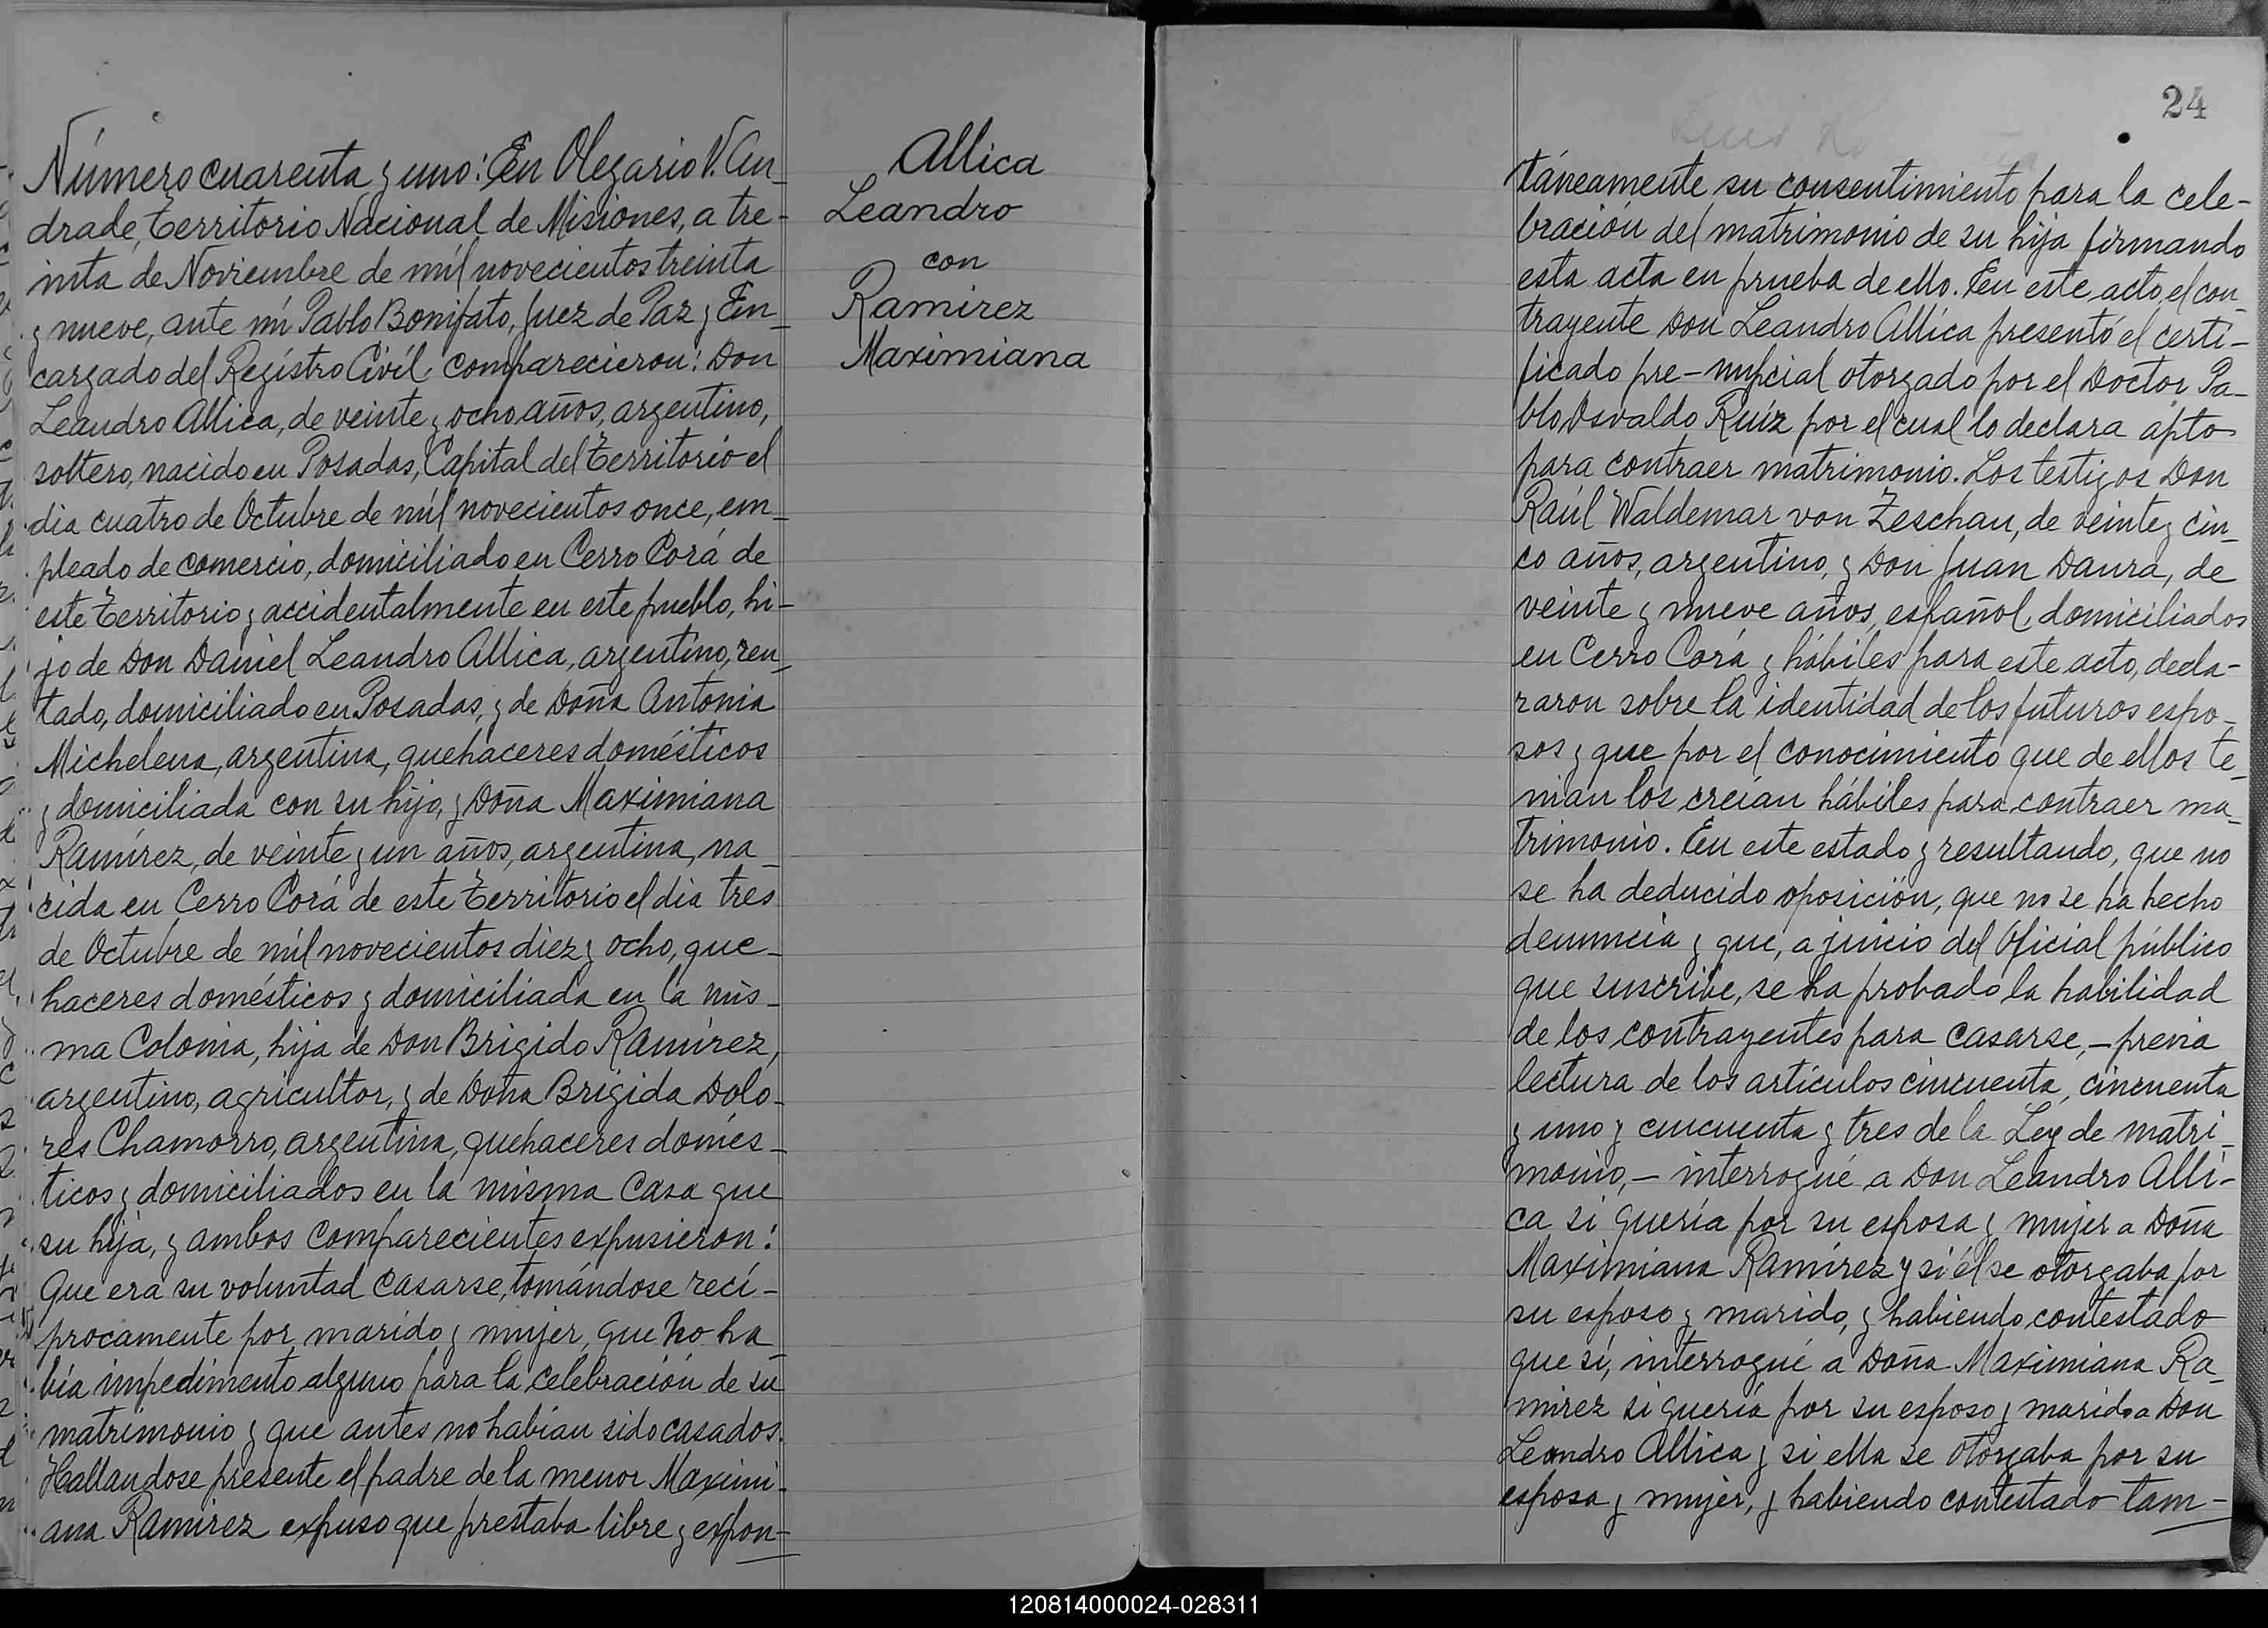 Número cuarenta y uno: En Olegario V. An-
drade, Territorio Nacional de Misiones, a tre-
inta de Noviembre de mil novecientos treinta
y nueve, ante mí Pablo Bonifato, Juez de Paz y En-
cargado del Registro Civil, comparecieron: Don
Leandro Allica, de veinte y ocho años, argentino,
soltero, nacido en Posadas, Capital del Territorio el
dia cuatro de Octubre de mil novecientos once, em-
pleado de comercio, domiciliado en Cerro Corá de
este Territorio y accidentalmente en este pueblo, hi-
jo de Don Daniel Leandro Allica, argentino, ren-
tado, domiciliado en Posadas, y de Doña Antonia
Michelena, argentina, quehaceres domésticos
y domiciliada con su hijo, y Doña Maximiana
Ramírez, de veinte y un años, argentina, na-
cida en Cerro Corá de este Territorio el dia tres
de Octubre de mil novecientos diez y ocho, que-
haceres domésticos y domiciliada en la mis-
ma Colonia, hija de Don Brigido Ramírez,
argentino, agricultor, y de Doña Brigida Dolo-
res Chamorro, argentina, quehaceres domés-
ticos y domiciliados en la misma Casa que
su hija, y ambos comparecientes expusieron:
Que era su voluntad casarse, tomándose recí-
procamente por marido y mujer, que no ha-
bía impedimento alguno para la celebración de su
matrimonio y que antes no habían sido casados.
Hallandose presente el padre de la menor Maximi-
ana Ramírez expuso que prestaba libre y expon-
Allica
Leandro
con
Ramirez
Maximiana
24
táneamente su consentimiento para la cele-
bración del matrimonio de su hija firmando
esta acta en prueba de ello. En este acto, el con-
trayente Don Leandro Allica presentó el certi-
ficado pre-nupcial otorgado por el Doctor Pa-
blo Osvaldo Ruíz por el cual lo declara apto
para contraer matrimonio. Los testigos Don
Raúl Waldemar von Zeschau, de veinte y cin-
co años, argentino, y Don Juan Daura, de
veinte y nueve años, español, domiciliados
en Cerro Corá y hábiles para este acto, decla-
raron sobre la identidad de los futuros espo-
sos y que por el conocimiento que de ellos te-
nían los creían hábiles para contraer ma-
trimonio. En este estado y resultando, que no
se ha deducido oposición, que no se ha hecho
denuncia y que, a juicio del Oficial público
que suscribe, se ha probado la habilidad
de los contrayentes para casarse, – previa
lectura de los artículos cincuenta, cincuenta
y uno y cincuenta y tres de la Ley de matri-
monio, – interrogué a Don Leandro Alli-
ca si quería por su esposa y mujer a Doña
Maximiana Ramírez y si él se otorgaba por
su esposo y marido, y habiendo contestado
que sí, interrogué a Doña Maximiana Ra-
mírez si quería por su esposo y marido a Don
Leandro Allica y si ella se otorgaba por su
esposa y mujer, y habiendo contestado tam-
120814000024-028311